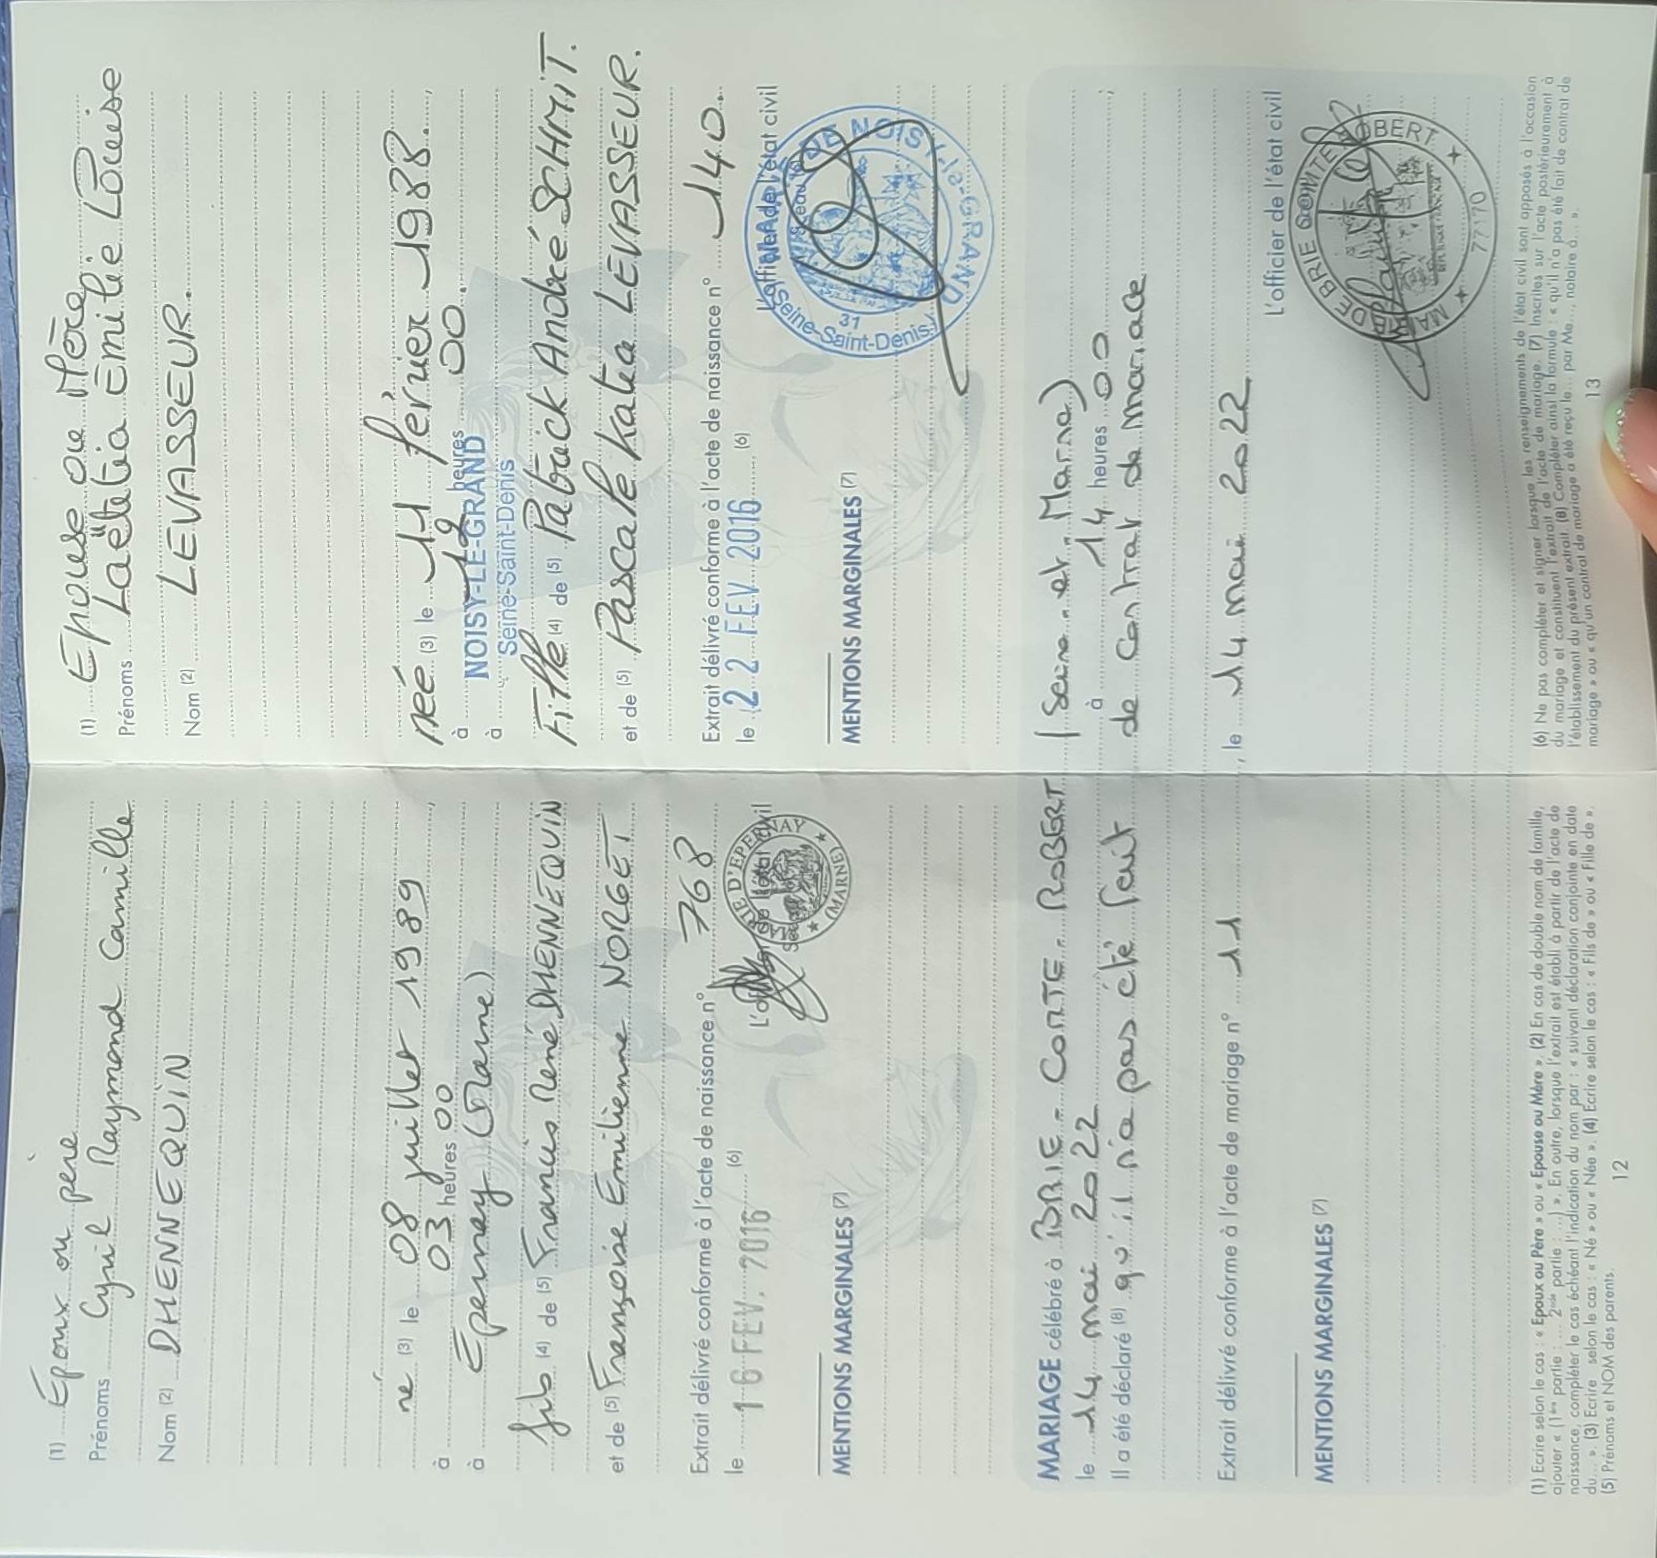 (1) Époux ou père
Prénoms Cyril Raymond Camille
Nom (2) DHENNEQUIN
né (3) le 08 juillet 1989,
à 03 heures 00
à Épernay (Marne)
fils (4) de (5) Francis René DHENNEQUIN
et de (5) Françoise Emilienne NORGET
Extrait délivré conforme à l'acte de naissance n° 768
le 16 FEV. 2016 (6)
L'officier de l'état civil
MAIRIE D'EPERNAY
(MARNE)
MENTIONS MARGINALES (7)
(1) Epouse ou Mère
Prénoms Laëtitia Emilie Louise
Nom (2) LEVASSEUR.
née (3) le 11 février 1988.,
à 19 heures 00.
à NOISY-LE-GRAND
Seine-Saint-Denis
Fille (4) de (5) Patrick André SCHMIT.
et de (5) Pascale Katia LEVASSEUR.
Extrait délivré conforme à l'acte de naissance n° 140.
le 22 FEV 2016 (6)
L'officier de l'état civil
DE NOISY-LE-GRAND
31
(Seine-Saint-Denis)
MENTIONS MARGINALES (7)
MARIAGE célébré à BRIE-COMTE-ROBERT (Seine-et-Marne)
le 14 mai 2022 à 14 heures 00,
Il a été déclaré (8) qu'il n'a pas été fait de contrat de mariage
Extrait délivré conforme à l'acte de mariage n° 11, le 14 mai 2022
L'officier de l'état civil
MAIRIE DE BRIE COMTE ROBERT
77170
MENTIONS MARGINALES (7)
(1) Ecrire selon le cas : « Epoux ou Père » ou « Epouse ou Mère ». (2) En cas de double nom de famille,
ajouter « (1ère partie : ... 2nde partie : ...) ». En outre, lorsque l'extrait est établi à partir de l'acte de
naissance, compléter le cas échéant l'indication du nom par : « suivant déclaration conjointe en date
du... ». (3) Ecrire selon le cas : « Né » ou « Née ». (4) Ecrire selon le cas : « Fils de » ou « Fille de ».
(5) Prénoms et NOM des parents.
12
(6) Ne pas compléter et signer lorsque les renseignements de l'état civil sont apposés à l'occasion
du mariage et constituent l'extrait de l'acte de mariage. (7) Inscrites sur l'acte postérieurement à
l'établissement du présent extrait. (8) Compléter ainsi la formule « qu'il n'a pas été fait de contrat de
mariage » ou « qu'un contrat de mariage a été reçu le... par Me..., notaire à... ».
13